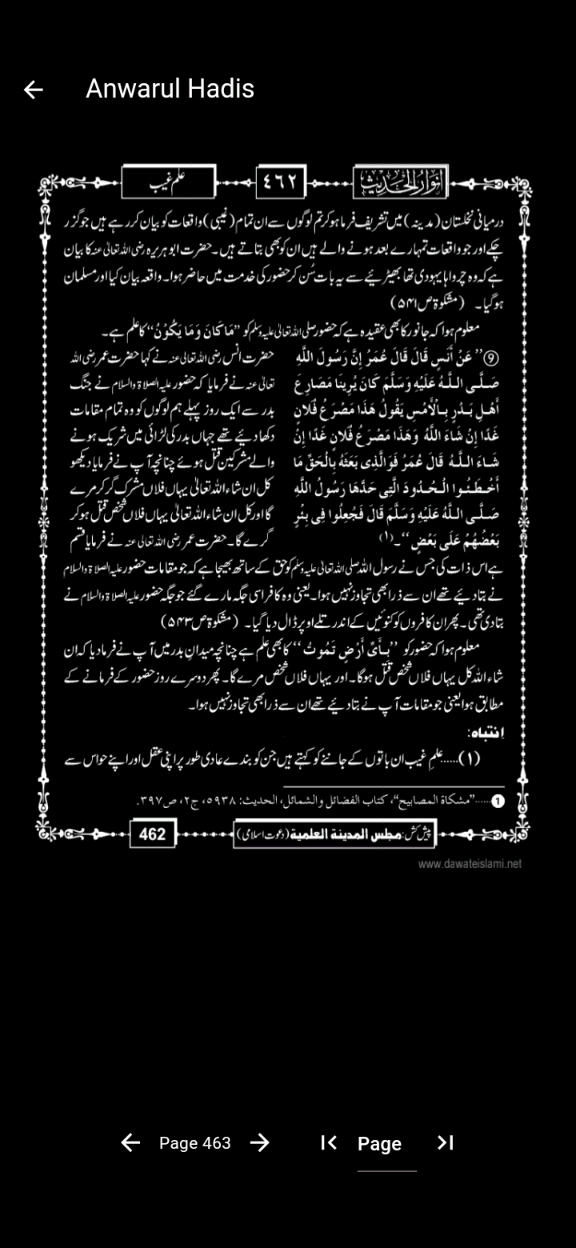 Anwarul Hadis
انوار الحدیث
٤٦٢
علم غیب
درمیانی نخلستان (مدینہ) میں تشریف فرما ہو کر تم لوگوں سے ان تمام (غیبی) واقعات کو بیان کر رہے ہیں جو گزر
چکے اور جو واقعات تمہارے بعد ہونے والے ہیں ان کو بھی بتاتے ہیں۔ حضرت ابو ہریرہ رضی اللہ تعالیٰ عنہ کا بیان
ہے کہ وہ چرواہا یہودی تھا بھیڑیئے سے یہ بات سُن کر حضور کی خدمت میں حاضر ہوا۔ واقعہ بیان کیا اور مسلمان
ہو گیا۔ (مشکوۃ ص۵۴۱)
معلوم ہوا کہ جانور کا بھی عقیدہ ہے کہ حضور صلی اللہ تعالیٰ علیہ وسلم کو ’’مَا کَانَ وَمَا یَکُوْنُ‘‘ کا علم ہے۔
⑨’’عَنْ أَنَسٍ قَالَ قَالَ عُمَرُ إِنَّ رَسُولَ اللَّهِ
صَلَّى اللَّهُ عَلَيْهِ وَسَلَّمَ كَانَ يُرِينَا مَصَارِعَ
أَهْلِ بَدْرٍ بِالْأَمْسِ يَقُولُ هَذَا مَصْرَعُ فُلَانٍ
غَدًا إِنْ شَاءَ اللَّهُ وَهَذَا مَصْرَعُ فُلَانٍ غَدًا إِنْ
شَاءَ اللَّهُ قَالَ عُمَرُ فَوَالَّذِى بَعَثَهُ بِالْحَقِّ مَا
أَخْطَئُوا الْحُدُودَ الَّتِى حَدَّهَا رَسُولُ اللَّهِ
صَلَّى اللَّهُ عَلَيْهِ وَسَلَّمَ قَالَ فَجُعِلُوا فِى بِئْرٍ
بَعْضُهُمْ عَلَى بَعْضٍ‘‘۔(۱)
حضرت انس رضی اللہ تعالیٰ عنہ نے کہا حضرت عمر رضی اللہ
تعالیٰ عنہ نے فرمایا کہ حضور علیہ الصلاۃ والسلام نے جنگ
بدر سے ایک روز پہلے ہم لوگوں کو وہ تمام مقامات
دکھا دیئے تھے جہاں بدر کی لڑائی میں شریک ہونے
والے مشرکین قتل ہوئے چنانچہ آپ نے فرمایا دیکھو
کل ان شاء اللہ تعالیٰ یہاں فلاں مشرک گر کر مرے
گا اور کل ان شاء اللہ تعالیٰ یہاں فلاں شخص قتل ہو کر
گرے گا۔ حضرت عمر رضی اللہ تعالیٰ عنہ نے فرمایا قسم
ہے اس ذات کی جس نے رسول اللہ صلی اللہ تعالیٰ علیہ وسلم کو حق کے ساتھ بھیجا ہے کہ جو مقامات حضور علیہ الصلاۃ والسلام
نے بتا دیئے تھے ان سے ذرا بھی تجاوز نہیں ہوا۔ یعنی وہ کافر اسی جگہ مارے گئے جو جگہ حضور علیہ الصلاۃ والسلام نے
بتا دی تھی۔ پھر ان کافروں کو کنوئیں کے اندر تلے اوپر ڈال دیا گیا۔ (مشکوۃ ص۵۴۳)
معلوم ہوا کہ حضور کو ’’بِأَیِّ أَرْضٍ تَمُوتُ‘‘ کا بھی علم ہے چنانچہ میدانِ بدر میں آپ نے فرما دیا کہ ان
شاء اللہ کل یہاں فلاں شخص قتل ہوگا۔ اور یہاں فلاں شخص مرے گا۔ پھر دوسرے روز حضور کے فرمانے کے
مطابق ہوا یعنی جو مقامات آپ نے بتا دیئے تھے ان سے ذرا بھی تجاوز نہیں ہوا۔
انتباہ:
(۱)......علمِ غیب ان باتوں کے جاننے کو کہتے ہیں جن کو بندے عادی طور پر اپنی عقل اور اپنے حواس سے
❶......’’مشكاة المصابيح‘‘، كتاب الفضائل والشمائل، الحديث: ۵۹۳۸، ج۲، ص۳۹۷.
پیش کش: مجلس المدینة العلمیة (دعوت اسلامی)
462
www.dawateislami.net
Page 463
Page